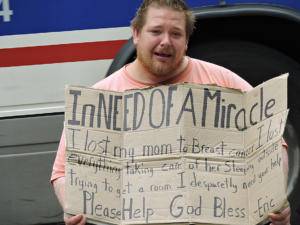 4
In NEED OF A Miracle
I lost my mom to Breast cancer I lost
everything taking care of her Sleeping outside
trying to get a room I despuretly need your help
Please Help God Bless -Eric